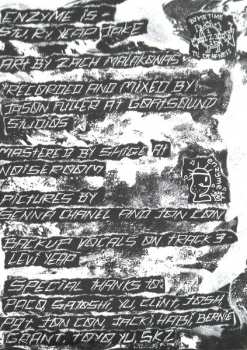 ENZYME IS
STU RY YEAP JAKE
ART BY ZACH MALAKONAS
RECORDED AND MIXED BY:
JASON FULLER AT GOATSOUND
STUDIOS
MASTERED BY SHIGE AT
NOISEROOM
PICTURES BY
SENNA CHANEL AND JON CON
BACKUP VOCALS ON TRACK 3
LEVI YEAP
SPECIAL THANKS TO:
PACO, SATOSHI, YU, CLINT, JOSH,
PAT JON CON, JACKI HABI, BERNIE
GRANT, TOYO YU, SKZ